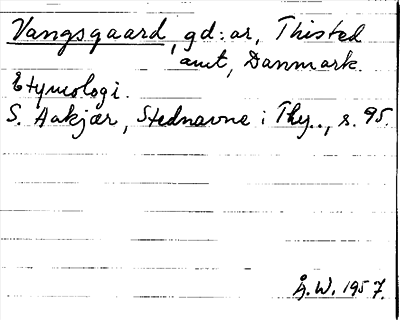 Vangsgaard, gd:ar, Thisted
amt, Danmark.
Etymologi.
S. Aakjær, Stednavne i Thy.., s. 95.
Å.W. 1957.